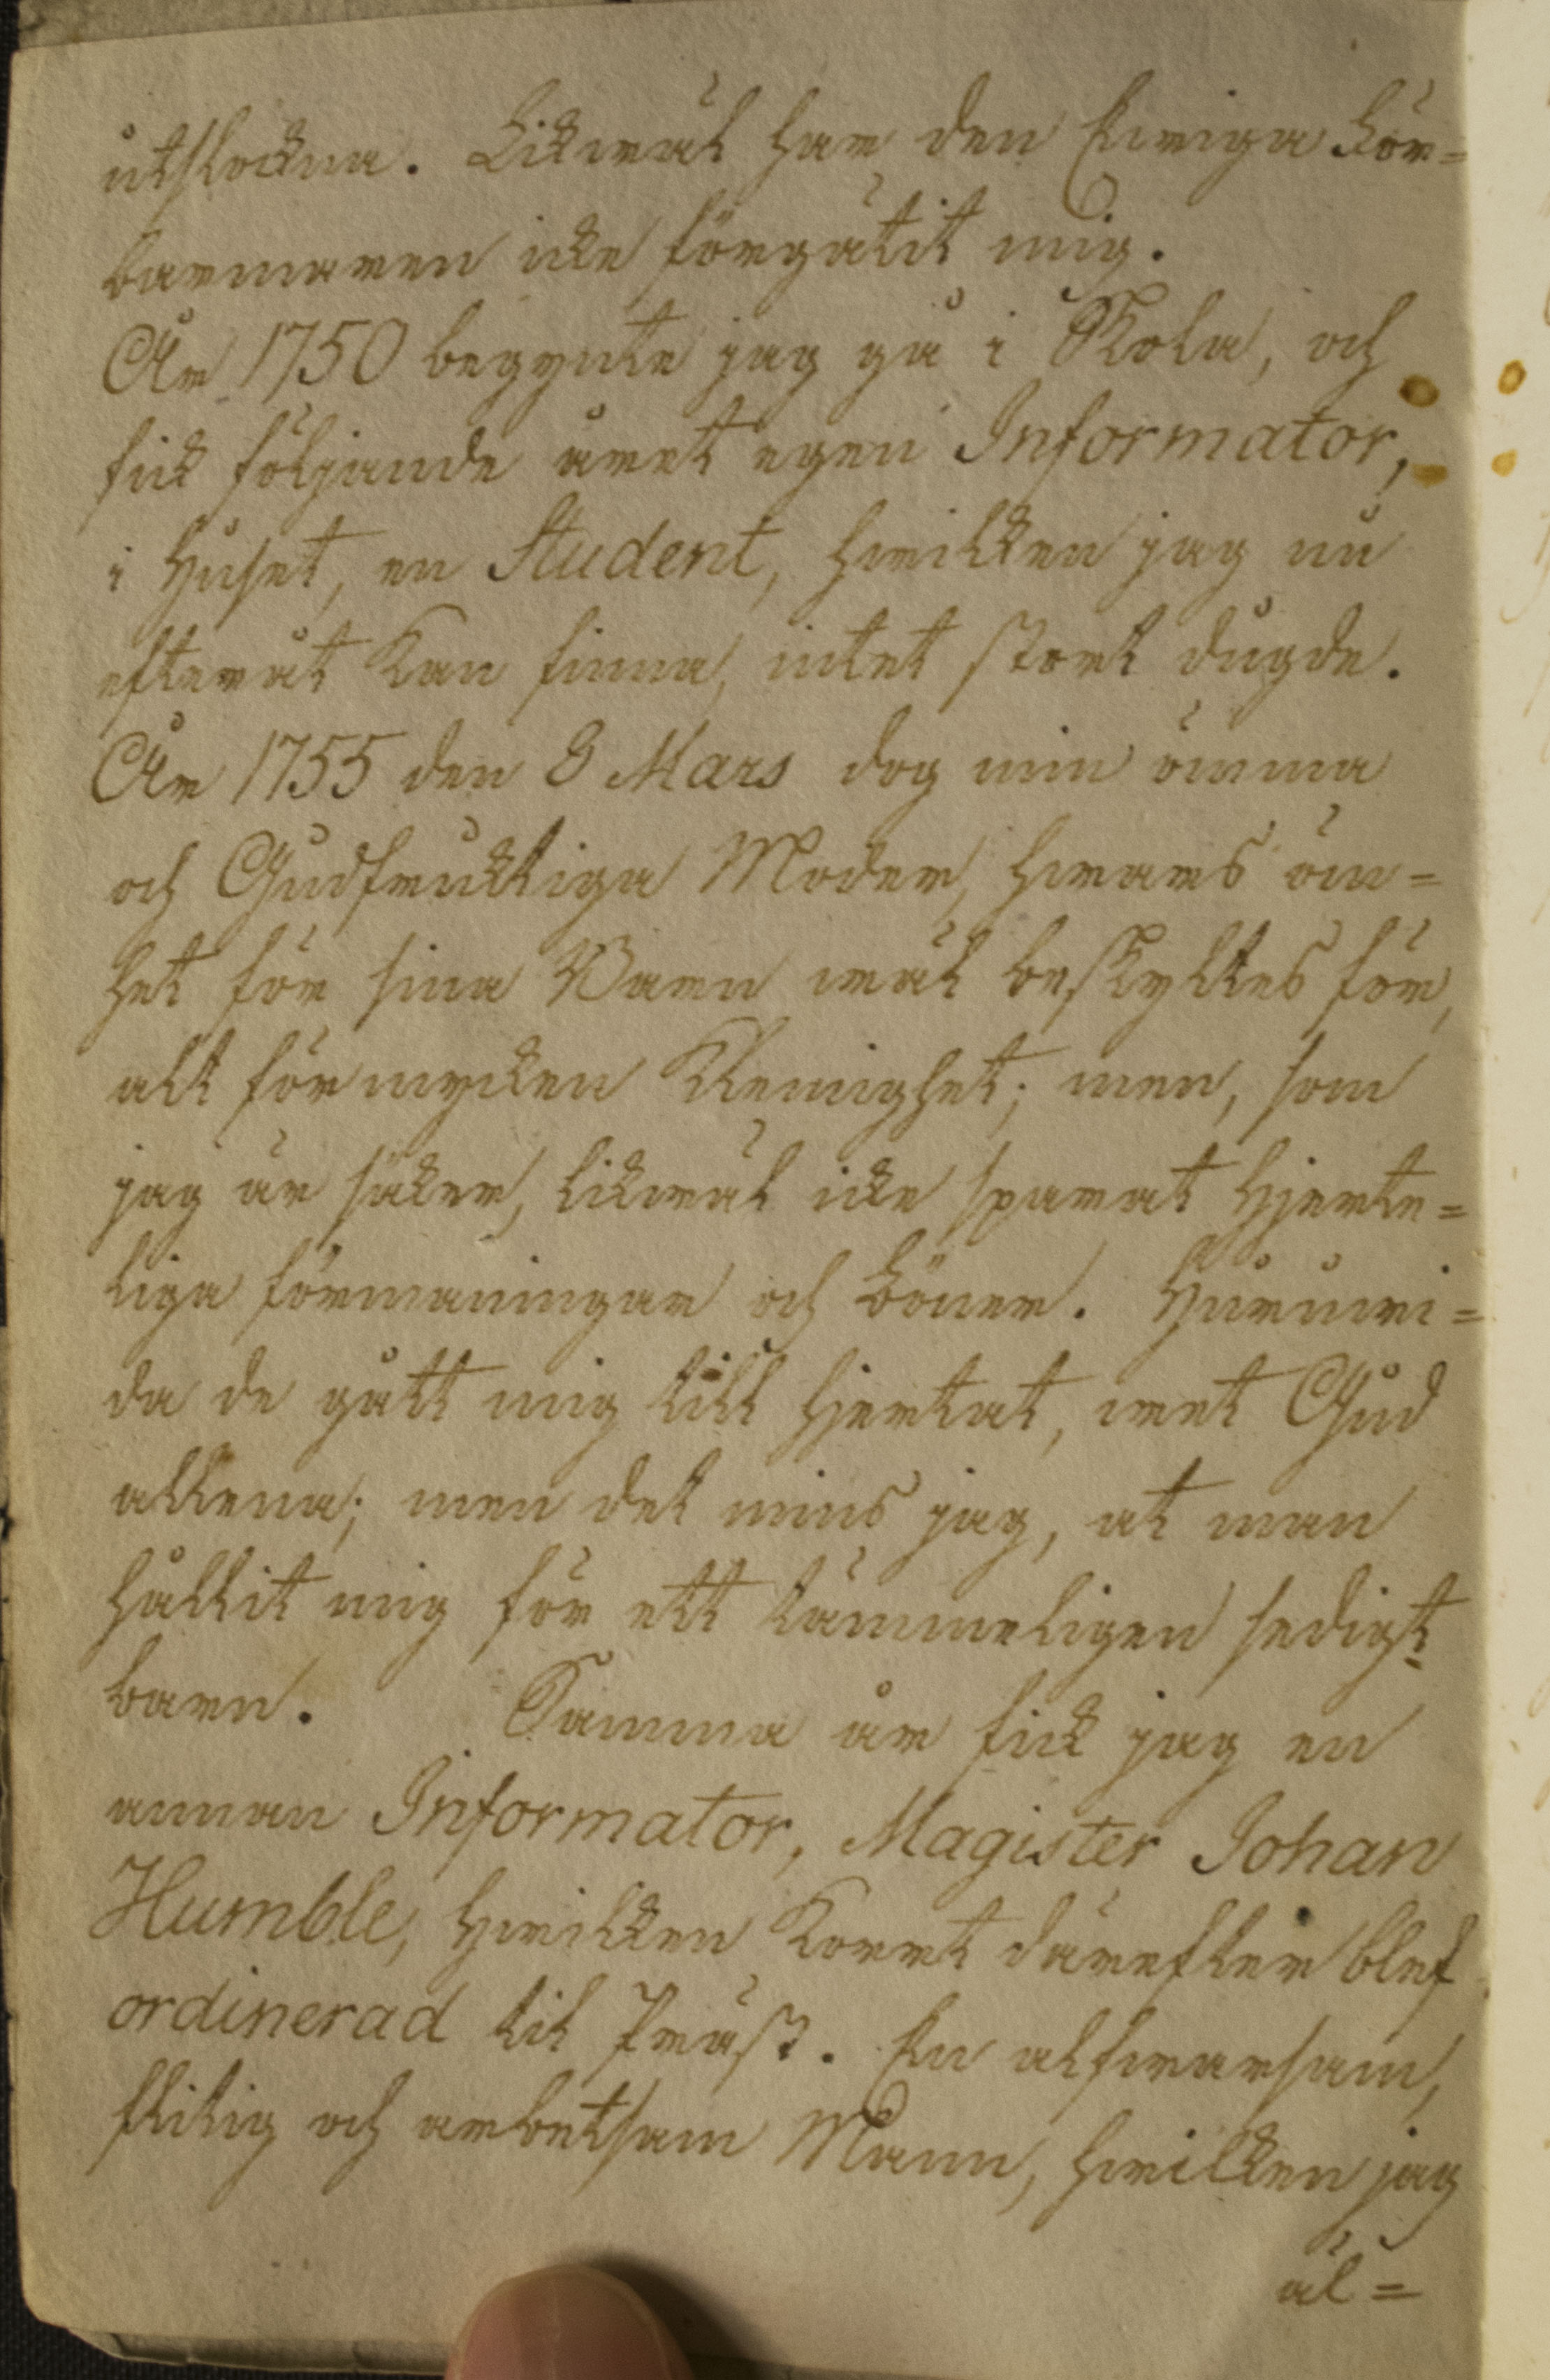 utslockna. Likwäl har den Ewiga För=
barmaren icke förgätit mig.
År 1750 begynte jag gå i Skola, och
fick följande året egen Informator,
i Huset, en Student, hwilken jag nu
efteråt kan finna, intet stort dugde.
År 1755 den 8 Mars dog min ömma
och Gudfruktiga Moder, hwars öm=
het för sina Barn wäl beskylles för,
allt för mycken Klemighet; men, som
jag är säker, likwäl icke sparat hjerte=
liga förmaningar och böner. Huruwi=
da de gått mig till hjertat, wet Gud
allena; men det mins jag, at man
hållit mig för ett tämmeligen sedigt
barn. Samma år fick jag en
annan Informator, Magister Johan
Humble, hwilken kort därefter blef
ordinerad til Präst. En alfwarsam,
flitig och arbetsam Mann, hwilken jag
äl=